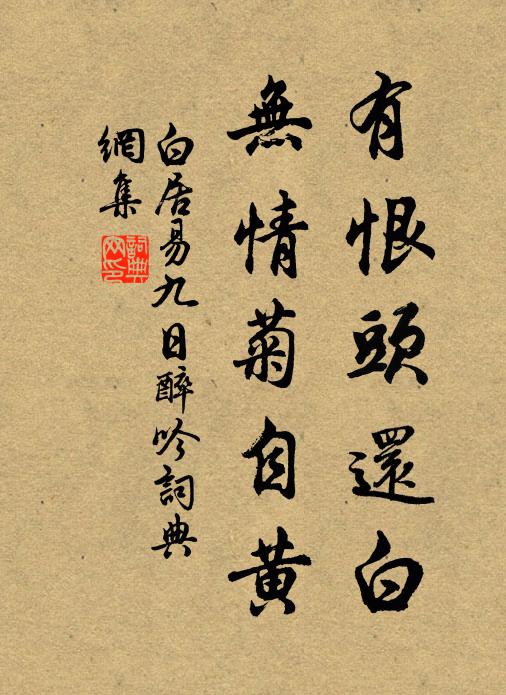 有恨頭還白
無情菊自黄
白居易九日醉吟詞典
網集
詞典
网印